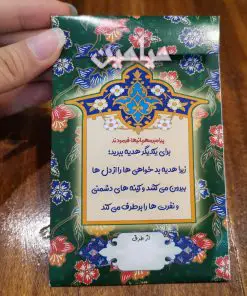 پیامبر مهربانی‌ها فرمودند
برای یکدیگر هدیه ببرید؛
زیرا هدیه بد خواهی ها را از دل ها
بیرون می کشد و کینه های دشمنی
و نفرت ها را برطرف می کند
از طرف: